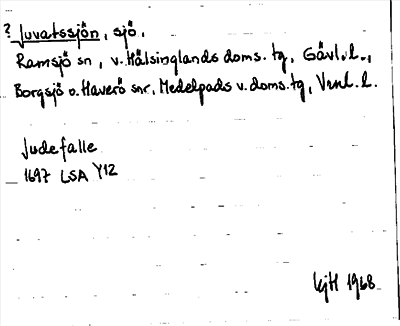 ? Juvatssjön, sjö,
Ramsjö sn, v. Hälsinglands doms. tg, Gävl. l.,
Borgsjö o. Haverö snr, Medelpads v. doms. tg, Vnl. l.
Judefalle
1697 LSA Y12
KjH 1968